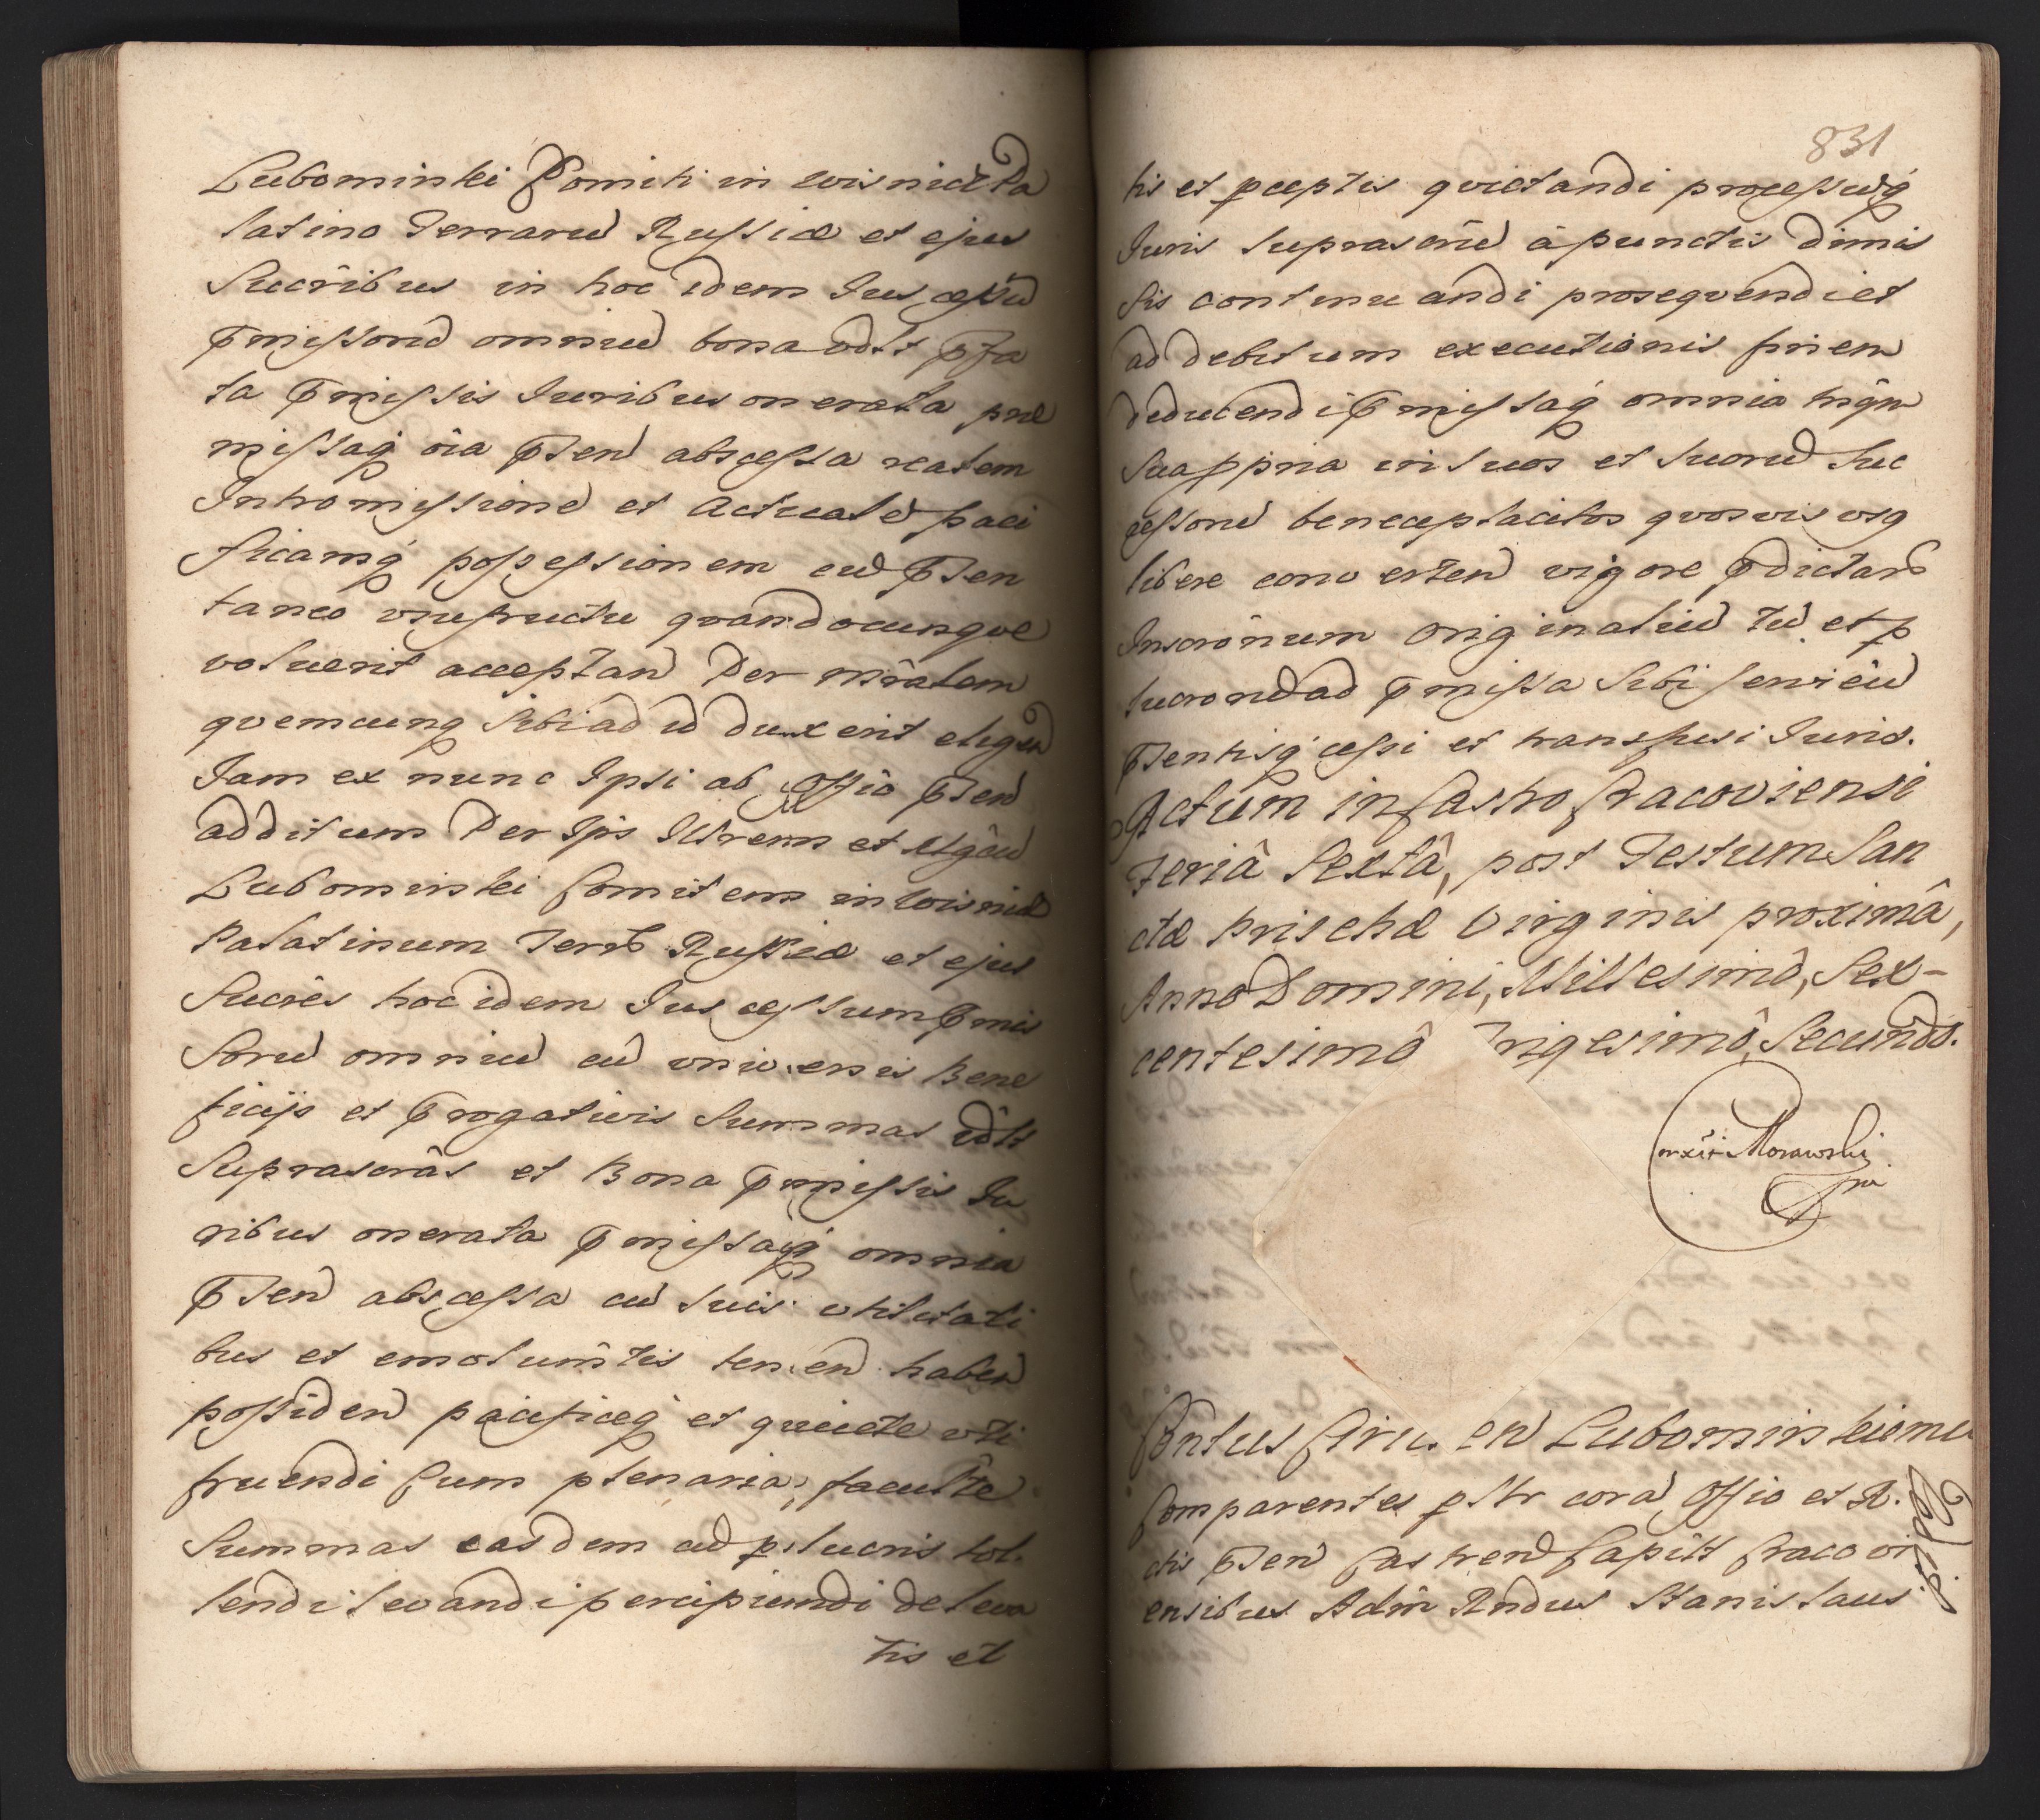 Lubomirski Comiti in Wisnicz Pa
latino Terrarū Russiæ et ejus
Succribus in hoc idem Ius cessū
p̄missorū omniū bona
ta p̄missis Iuribus onerata præ
missaq̨ oīa p̄sen abscessa realem
Intromissionē et Actualē paci
ficamq̨ possessionem cū p̄sen
taneo usufructu quandocunque
voluerit acceptan Per Mrālem
quemcunq̨ sibi ad id duxerit eligen
Iam ex nunc Ipsi ab Offīo p̄sen
additum Per Ips Illrem et Mgcū
Lubomirski Comitem in Wisnicz
Palatinum Terrar Russiæ et ejus
Succres hoc idem Ius cessum p̄mis
sorū omniū cū universis Bene
ficijs et p̄rogativis Summas
suprascrās et Bona p̄missis Iu
ribus onerata p̄missaq̨ omnia
p̄sen abscessa cū suis utilitati
bus et emolumtis tenen haben
possiden pacificeq̨ et quiete uti
fruendi Cum plenaria facultte
Summas easdem cū p̱lucris tol
lendi levandi percipiendi de leva
tis et
831
tis et p̱ceptis quietandi processuq̨
Iuris suprascrīu à punctis dimis
sis continuandi prosequendi et
ad debitum executionis finem
deducendi p̄missaq̨ omnia tnq̄m
sua p̱pria in suos et suorū suc
cessorū beneceplacitos quosvis usq̨
libere converten vigore p̄dictar
Inscrōnum Originaliū Tū et p̱
lucrorū ad p̄missa sibi servieñ
p̄sentisq̨ cessi et transfusi Iuris.
Actum in Castro Cracoviensi
Feriâ Sextâ, post Festum San
ctæ Prischæ Virginis proximâ,
Anno Domini, Millesimô, Sex-
centesimô gesimô, Secundô.
Morawski
Lubomirskiemu
Comparentes p̱slr corā Offīo et A.
ctis p̄sen Castren Capitt Cracovi
ensibus Adm Rndus Stanislaus